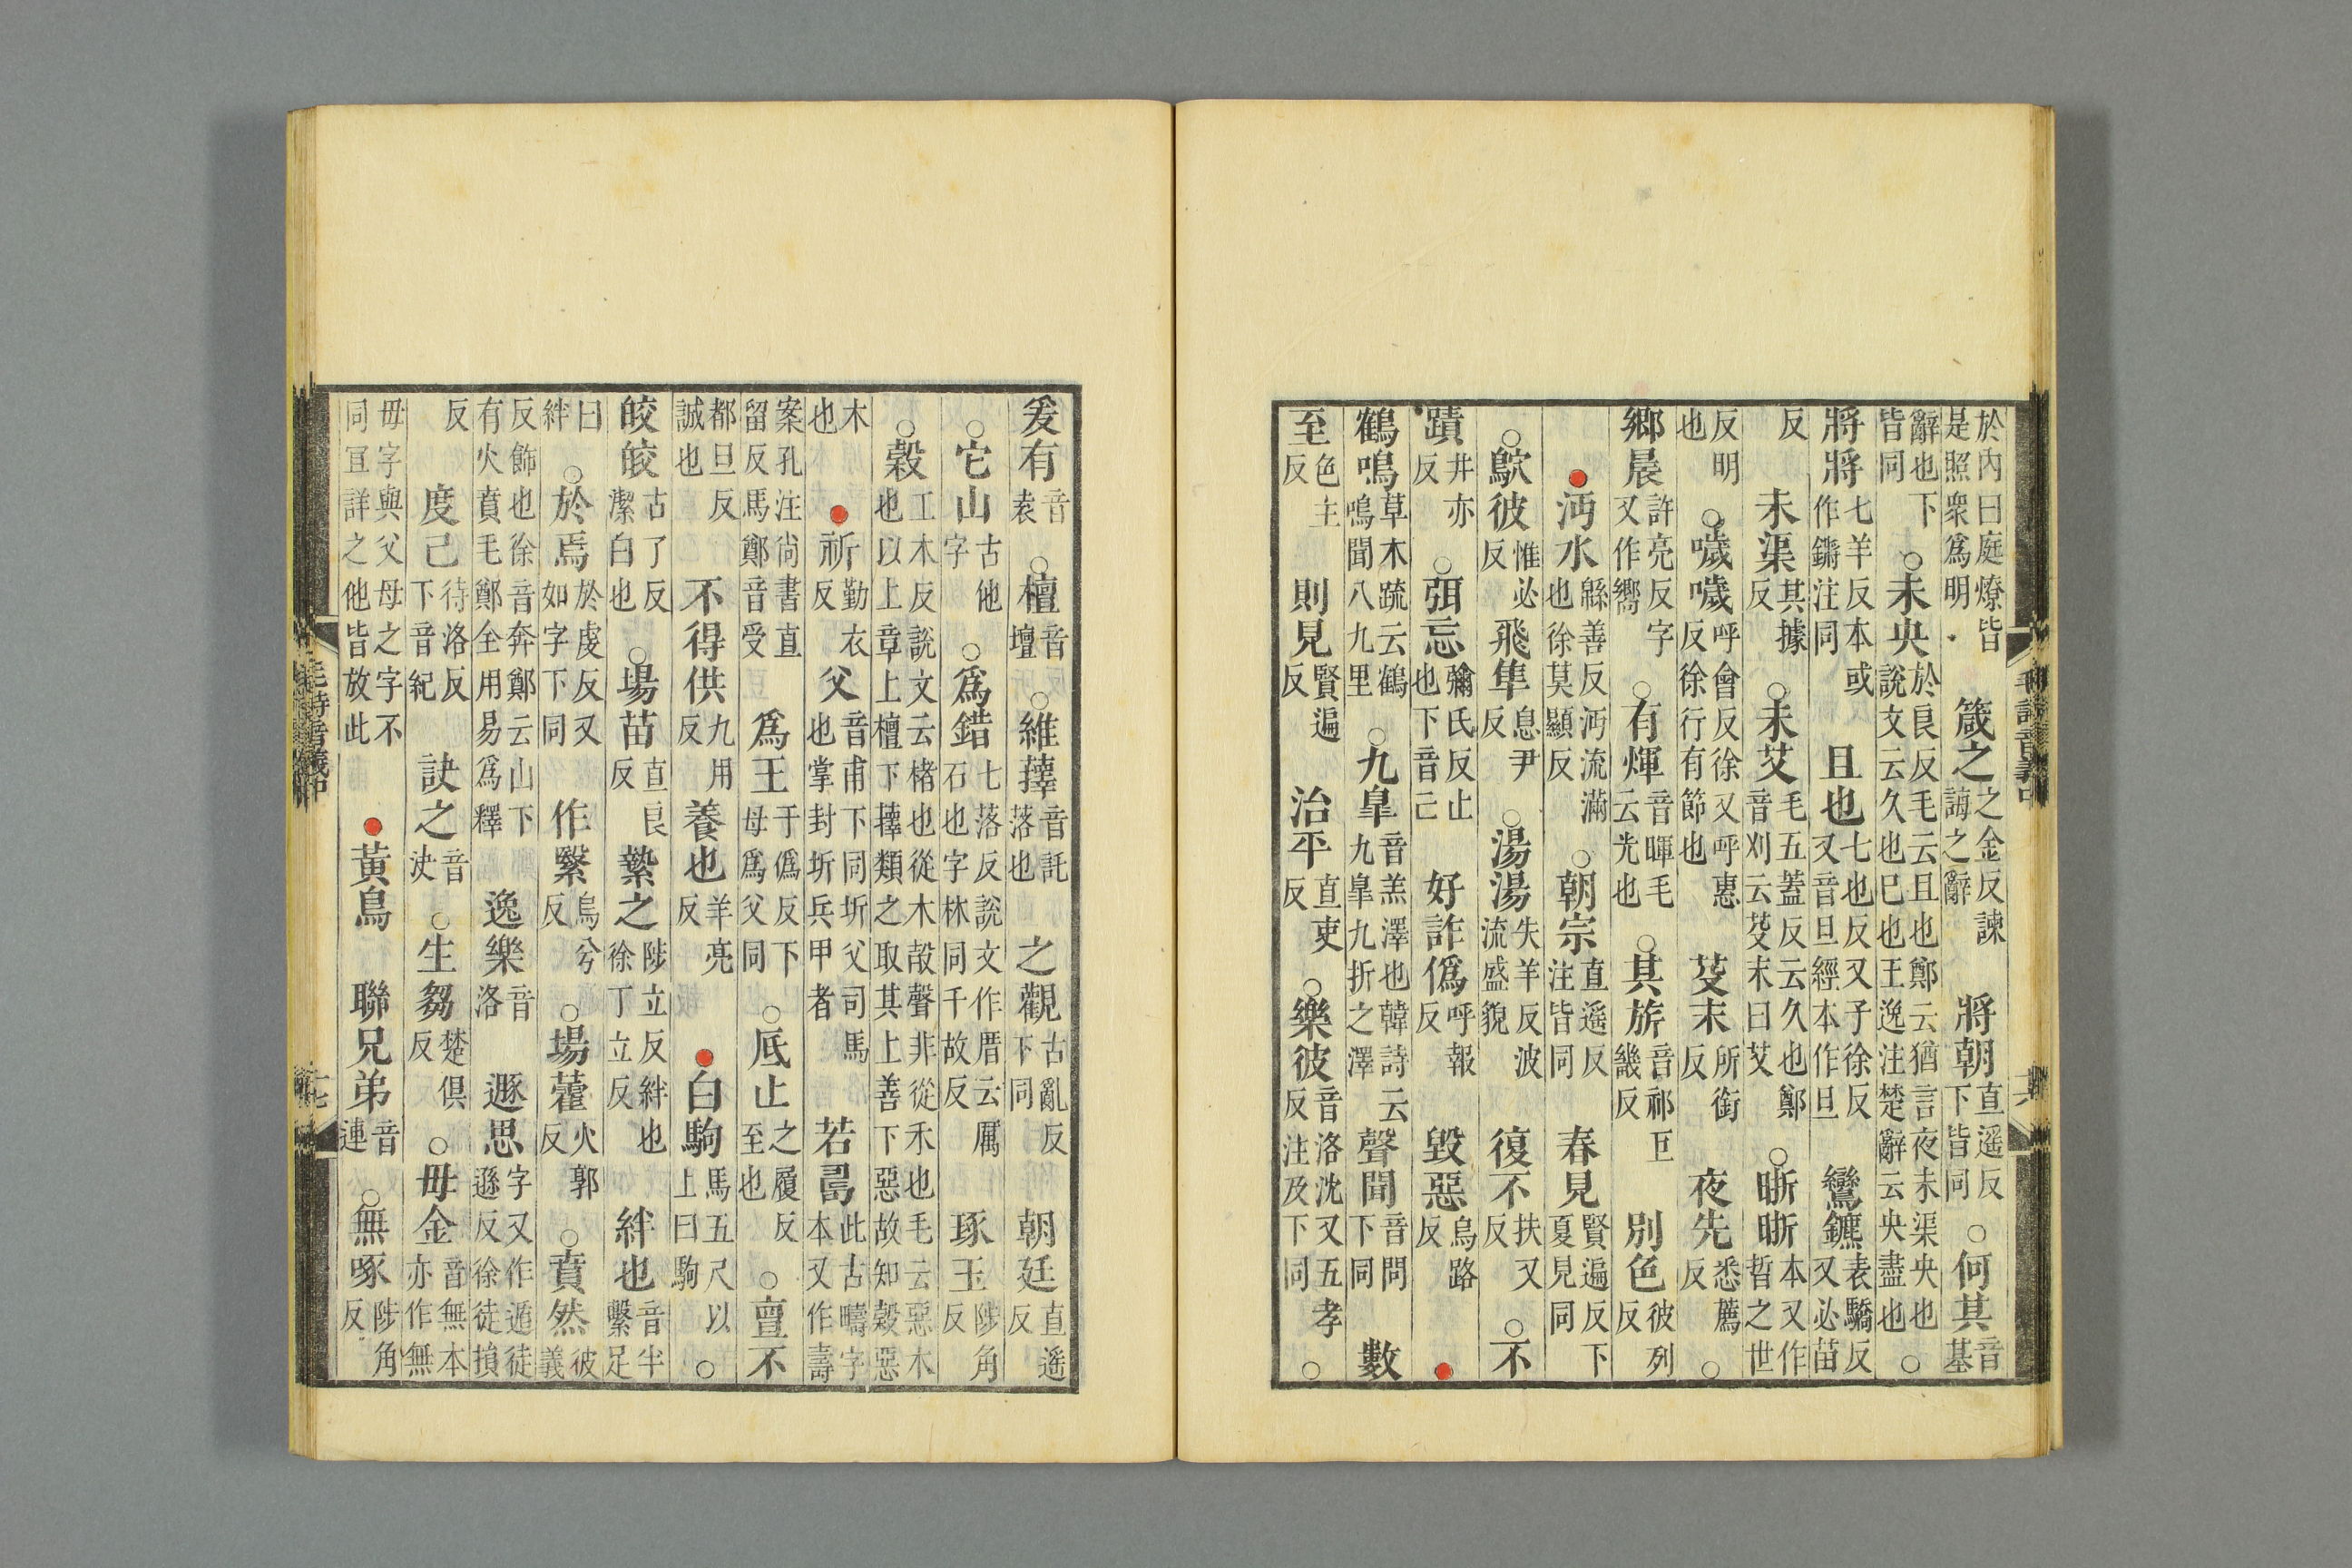 於內曰庭燎皆是照衆爲明 箴之之金反諫誨之辭 將朝直遥反下皆同○何其音基
辭也下皆同○未央於良反毛云且也鄭云猶言夜未渠央也說文云久也巳也王逸注楚辭云央盡也○
將將七羊反本或作鏘注同 且也七也反又子徐反又音旦經本作旦 鸞鑣表驕反又必苗
反 未渠其據反○未艾毛五蓋反云久也鄭音刈云芟末曰艾○晣晣本又作晢之世
反明也○噦噦呼會反徐又呼惠反徐行有節也 芟末所銜反 夜先悉薦反○
鄉晨許亮反字又作嚮○有煇音暉毛云光也○其旂音祁巨畿反 別色彼列反
●沔水緜善反沔流滿也徐莫顯反○朝宗直遥反注皆同 春見賢遍反下夏見同
○鴥彼惟必反 飛隼息尹反○湯湯失羊反波流盛貌 復不扶又反○不
蹟井亦反○弭忘彌氏反止也下音己 好詐僞呼報反 毀惡烏路反●
鶴鳴草木疏云鶴鳴聞八九里○九皐音羔澤也韓詩云九皐九折之澤 聲聞音問下同 數
至色主反 則見賢遍反 治平直吏反○樂彼音洛沈又五孝反注及下同○
毛詩音義中
爰有音袁○檀音壇○維蘀音託落也 之觀古亂反下同 朝廷直遥反
○它山古他字○爲錯七落反說文作厝云厲石也字林同千故反 琢玉陟角反
○榖工木反說文云楮也從木㱿聲非從禾也毛云惡木也以上章上檀下蘀類之取其上善下惡故知榖惡
木也 ●祈勤衣反 父音甫下同圻父司馬也掌封圻兵甲者 若𠷎此古疇字本又作壽
案孔注尚書直留反馬鄭音受 爲王于僞反下母爲父同○厎止之履反至也○亶不
都旦反誠也 不得供九用反 養也羊亮反 ●白駒馬五尺以上曰駒○
皎皎古了反潔白也○場苗直良反 縶之陟立反絆也徐丁立反 絆也音半繫足
曰絆○於焉於虔反又如字下同 作繄烏兮反○場藿火郭反○賁然彼義
反飾也徐音奔鄭云山下有火賁毛鄭全用易爲釋 逸樂音洛 遯思字又作遁徒遜反徐徒損
反 度己待洛反下音紀 訣之音决○生芻楚俱反○毋金音無本亦作無
毋字與父母之字不同宜詳之他皆放此 ●黃鳥 聯兄弟音連○無啄陟角反
毛詩音義中
十七